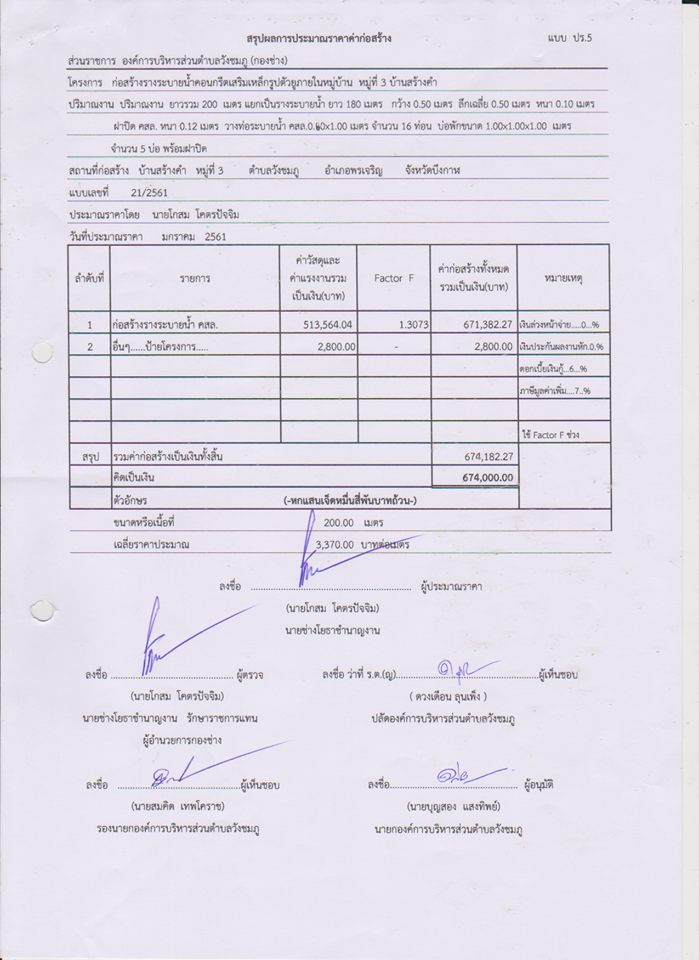 สรุปผลการประมาณราคาค่าก่อสร้าง แบบ ปร.5
ส่วนราชการ องค์การบริหารส่วนตำบลวังชมภู (กองช่าง)
โครงการ ก่อสร้างรางระบายน้ำคอนกรีตเสริมเหล็กรูปตัวยูภายในหมู่บ้าน หมู่ที่ 3 บ้านสร้างคำ
ปริมาณงาน ปริมาณงาน ยาวรวม 200 เมตร แยกเป็นรางระบายน้ำ ยาว 180 เมตร กว้าง 0.50 เมตร ลึกเฉลี่ย 0.50 เมตร หนา 0.10 เมตร
ฝาปิด คสล. หนา 0.12 เมตร วางท่อระบายน้ำ คสล.0.60x1.00 เมตร จำนวน 16 ท่อน บ่อพักขนาด 1.00x1.00x1.00 เมตร
จำนวน 5 บ่อ พร้อมฝาปิด
สถานที่ก่อสร้าง บ้านสร้างคำ หมู่ที่ 3 ตำบลวังชมภู อำเภอพรเจริญ จังหวัดบึงกาฬ
แบบเลขที่ 21/2561
ประมาณราคาโดย นายโกสม โคตรปัจจิม
วันที่ประมาณราคา มกราคม 2561
ลำดับที่ รายการ ค่าวัสดุและค่าแรงงานรวมเป็นเงิน(บาท) Factor F ค่าก่อสร้างทั้งหมดรวมเป็นเงิน(บาท) หมายเหตุ
1 ก่อสร้างรางระบายน้ำ คสล. 513,564.04 1.3073 671,382.27 เงินล่วงหน้าจ่าย.....0...%
2 อื่นๆ......ป้ายโครงการ..... 2,800.00 - 2,800.00 เงินประกันผลงานหัก.0.%
ดอกเบี้ยเงินกู้...6...%
ภาษีมูลค่าเพิ่ม....7..%
ใช้ Factor F ช่วง
สรุป รวมค่าก่อสร้างเป็นเงินทั้งสิ้น 674,182.27
คิดเป็นเงิน 674,000.00
ตัวอักษร (-หกแสนเจ็ดหมื่นสี่พันบาทถ้วน-)
ขนาดหรือเนื้อที่ 200.00 เมตร
เฉลี่ยราคาประมาณ 3,370.00 บาทต่อเมตร
ลงชื่อ ผู้ประมาณราคา
(นายโกสม โคตรปัจจิม)
นายช่างโยธาชำนาญงาน
ลงชื่อ ผู้ตรวจ ลงชื่อ ว่าที่ ร.ต.(ญ) ผู้เห็นชอบ
(นายโกสม โคตรปัจจิม) ( ดวงเดือน ลุนเพ็ง )
นายช่างโยธาชำนาญงาน รักษาราชการแทน ปลัดองค์การบริหารส่วนตำบลวังชมภู
ผู้อำนวยการกองช่าง
ลงชื่อ ผู้เห็นชอบ ลงชื่อ ผู้อนุมัติ
(นายสมคิด เทพโคราช) (นายบุญสอง แสงทิพย์)
รองนายกองค์การบริหารส่วนตำบลวังชมภู นายกองค์การบริหารส่วนตำบลวังชมภู